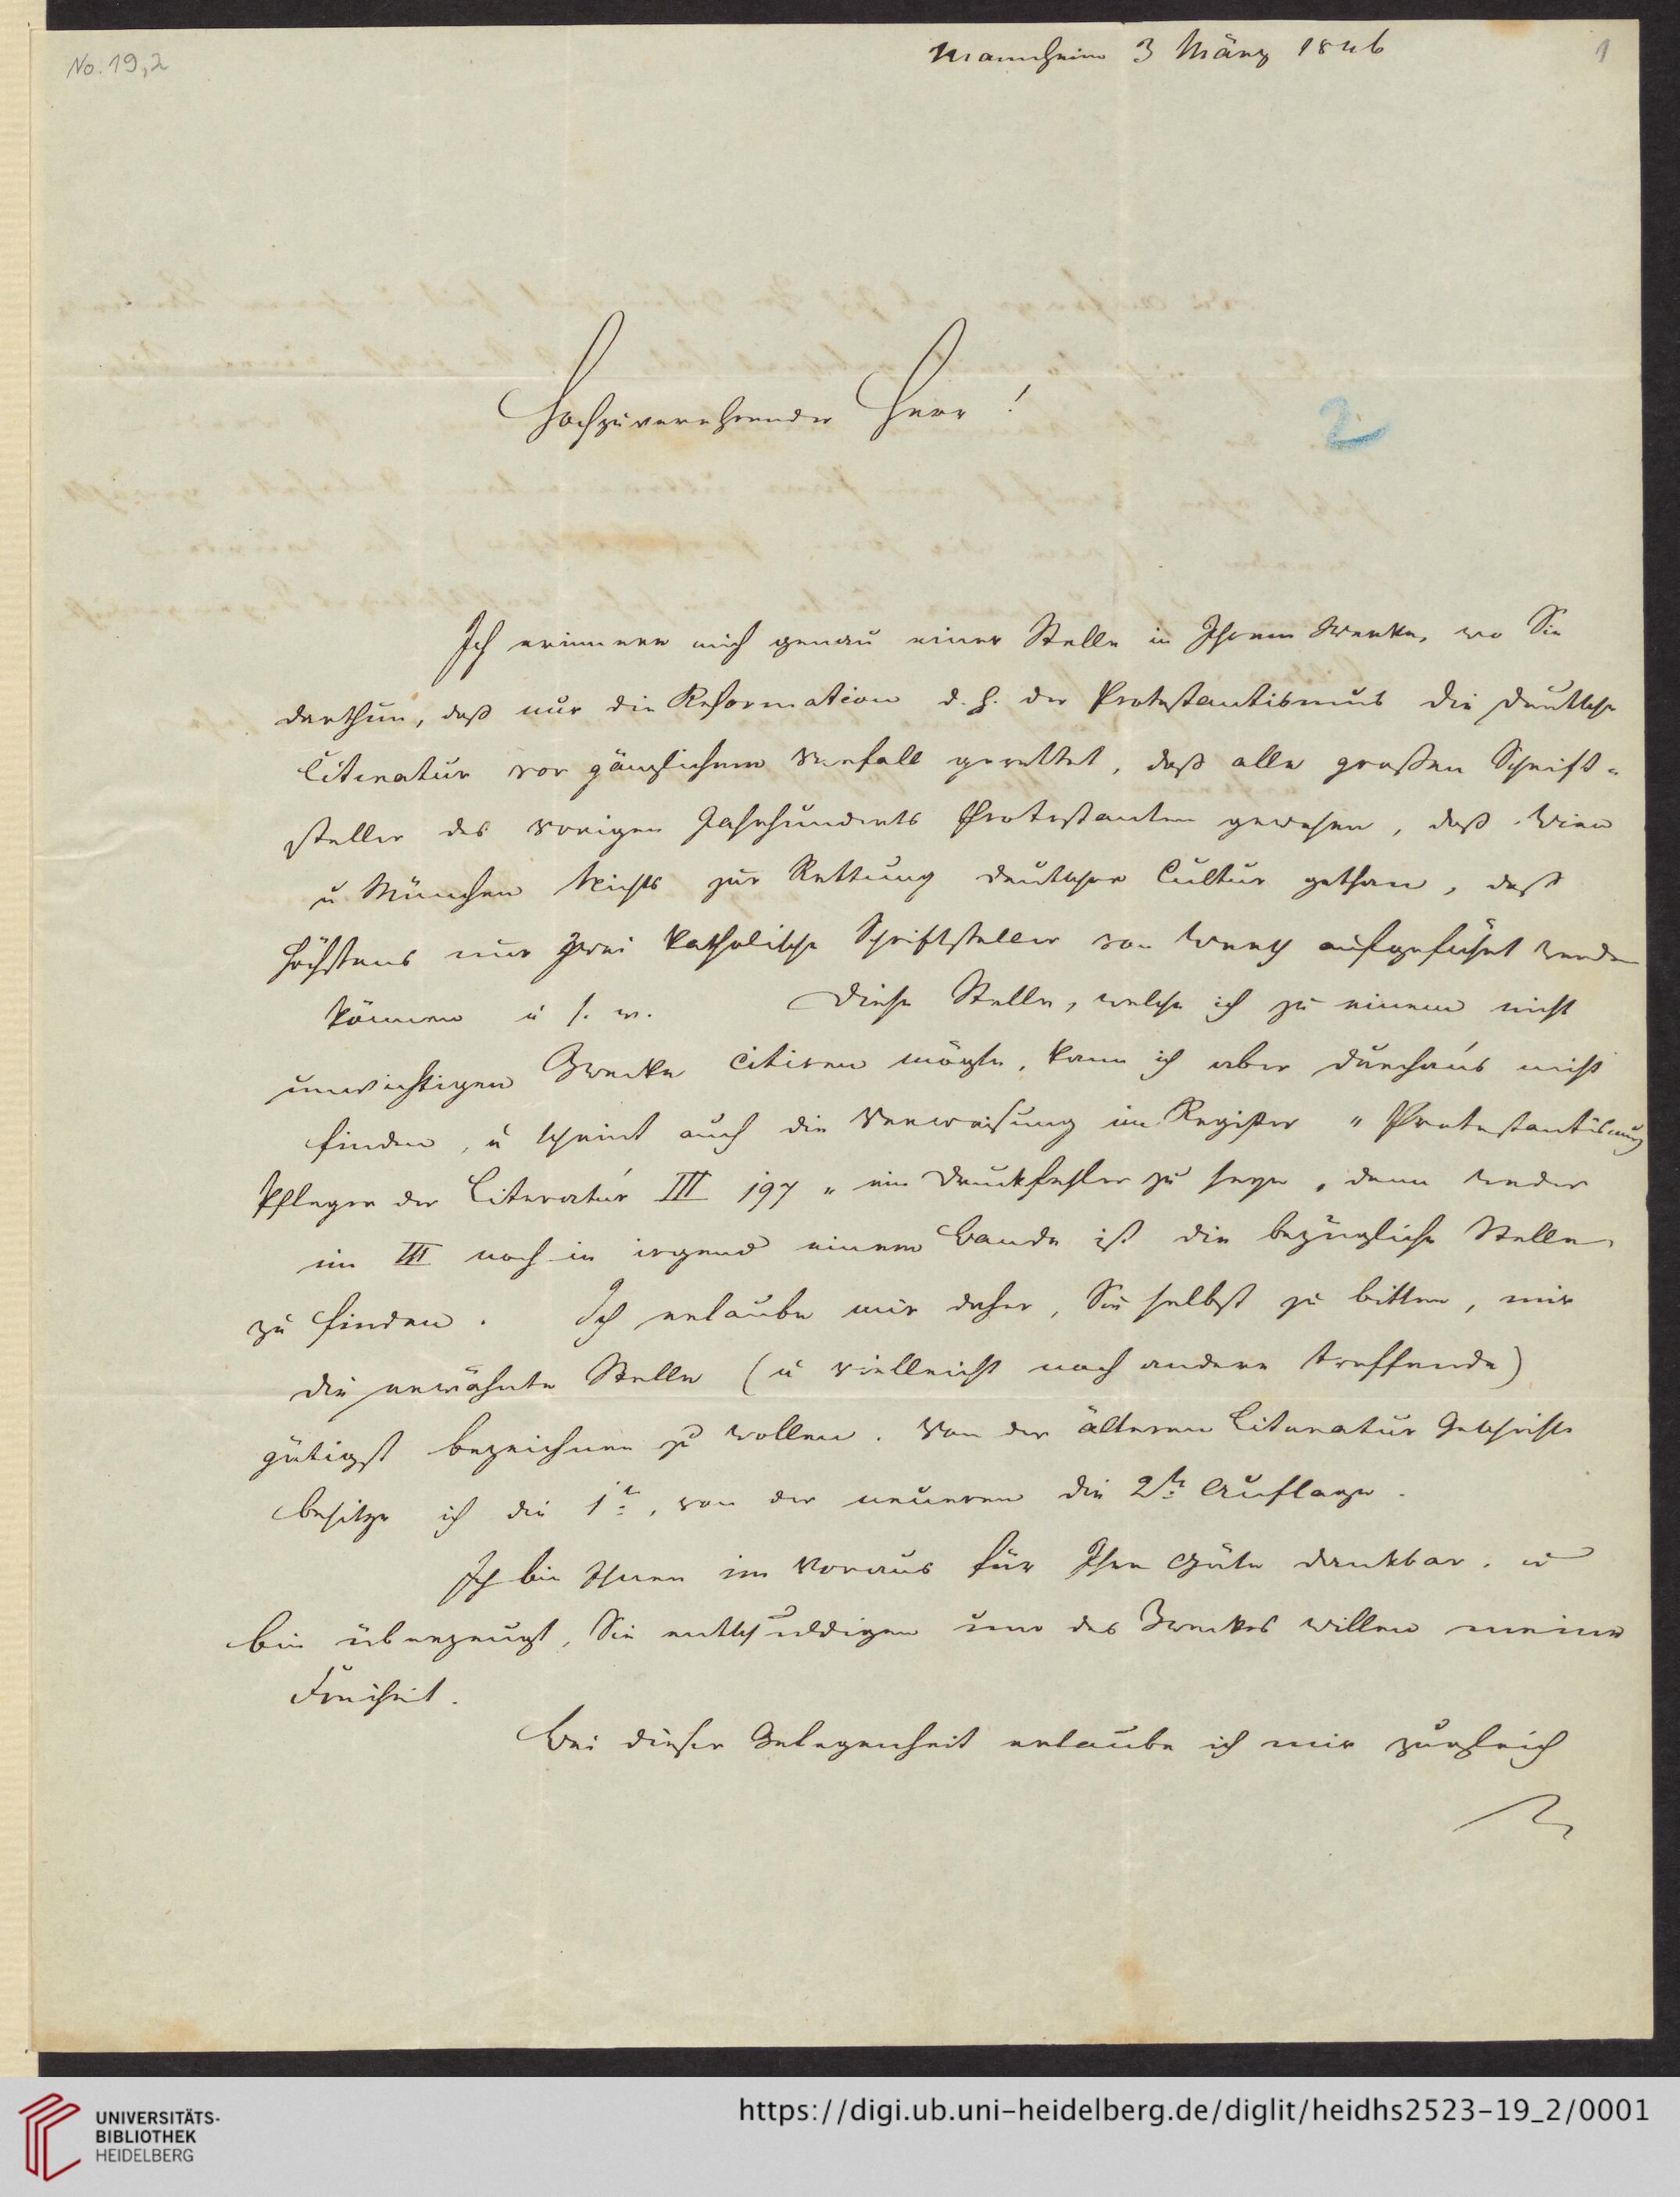 No. 19,2
Mannheim 3 März 1846
1
Hochzuverehrender Herr!
2
Ich erinnere mich genau einer Stelle in Ihrem Werke, wo Sie
darthun, daß nur die Reformation d. h. der Protestantismus die deutsche
Literatur vor gänzlichem Verfall gerettet, daß alle großen Schrift-
steller des vorigen Jahrhunderts Protestanten gewesen, daß Wien
u München Nichts zur Rettung deutscher Cultur gethan, daß
höchstens nur zwei katholische Schriftsteller von Werth aufgeführt werden
können u s. w. Diese Stelle, welche ich zu einem nicht
unwichtigen Zwecke citiren mögte, kann ich aber durchaus nicht
finden, u scheint auch die Verweisung im Register „Protestantismus
Pfleger der Literatur III 197" ein Druckfehler zu seyn, denn weder
im III noch in irgend einem Bande ist die bezügliche Stelle
zu finden. Ich erlaube mir daher, Sie selbst zu bitten, mir
die erwähnte Stelle (u vielleicht noch andere treffende)
gütigst bezeichnen zu wollen. Von der älteren Literatur Geschichte
besitze ich die 1te, von der neueren die 2te Auflage.
Ich bin Ihnen im Voraus für Ihre Güte dankbar, u
bin überzeugt, Sie entschuldigen um des Zweckes willen meine
Freiheit.
Bei dieser Gelegenheit erlaube ich mir zugleich
UNIVERSITÄTS-
BIBLIOTHEK
HEIDELBERG
https://digi.ub.uni-heidelberg.de/diglit/heidhs2523-19_2/0001